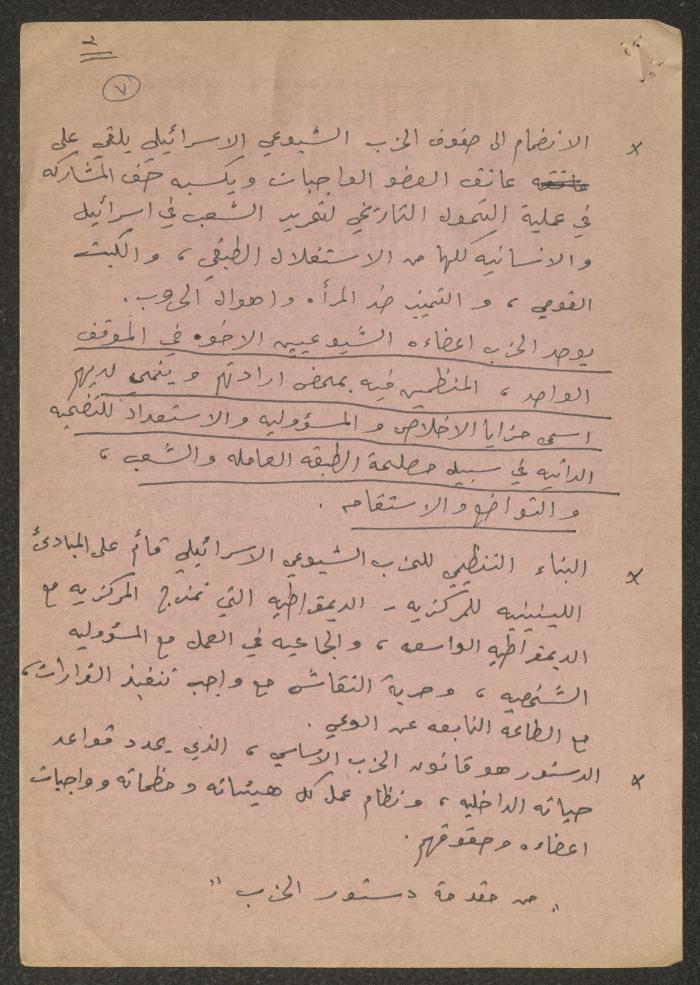 ٢
٧
× الانضمام الى صفوف الحزب الشيوعي الاسرائيلي يلقي على
عاتقه عاتق العضو الواجبات ويكسبه حق المشاركه
في عملية التحول التاريخي لتحرير الشعب في اسرائيل
والانسانيه كلها من الاستغلال الطبقي ، والكبت
القومي ، و التمييز ضد المرأه واهوال الحروب .
يوحد الحزب اعضاءه الشيوعيين الاخوه في الموقف
الواحد ، المنظمين فيه بمحض ارادتهم وينمي لديهم
اسمى مزايا الاخلاص والمسؤوليه والاستعداد للتضحيه
الذاتيه في سبيل مصلحة الطبقه العامله والشعب ،
والتواضع والاستقامه .
× البناء التنظيمي للحزب الشيوعي الاسرائيلي قائم على المبادئ
اللينينيه للمركزيه - الديمقراطيه التي تمزج المركزيه مع
الديمقراطيه الواسعه ، والجماعيه في العمل مع المسؤوليه
الشخصيه ، وحرية النقاش مع واجب تنفيذ القرارات ،
مع الطاعه النابعه عن الوعي .
× الدستور هو قانون الحزب الاساسي ، الذي يحدد قواعد
حياته الداخليه ، ونظام عمل كل هيئاته ومنظماته وواجبات
اعضاءه وحقوقهم .
" من مقدمة دستور الحزب "